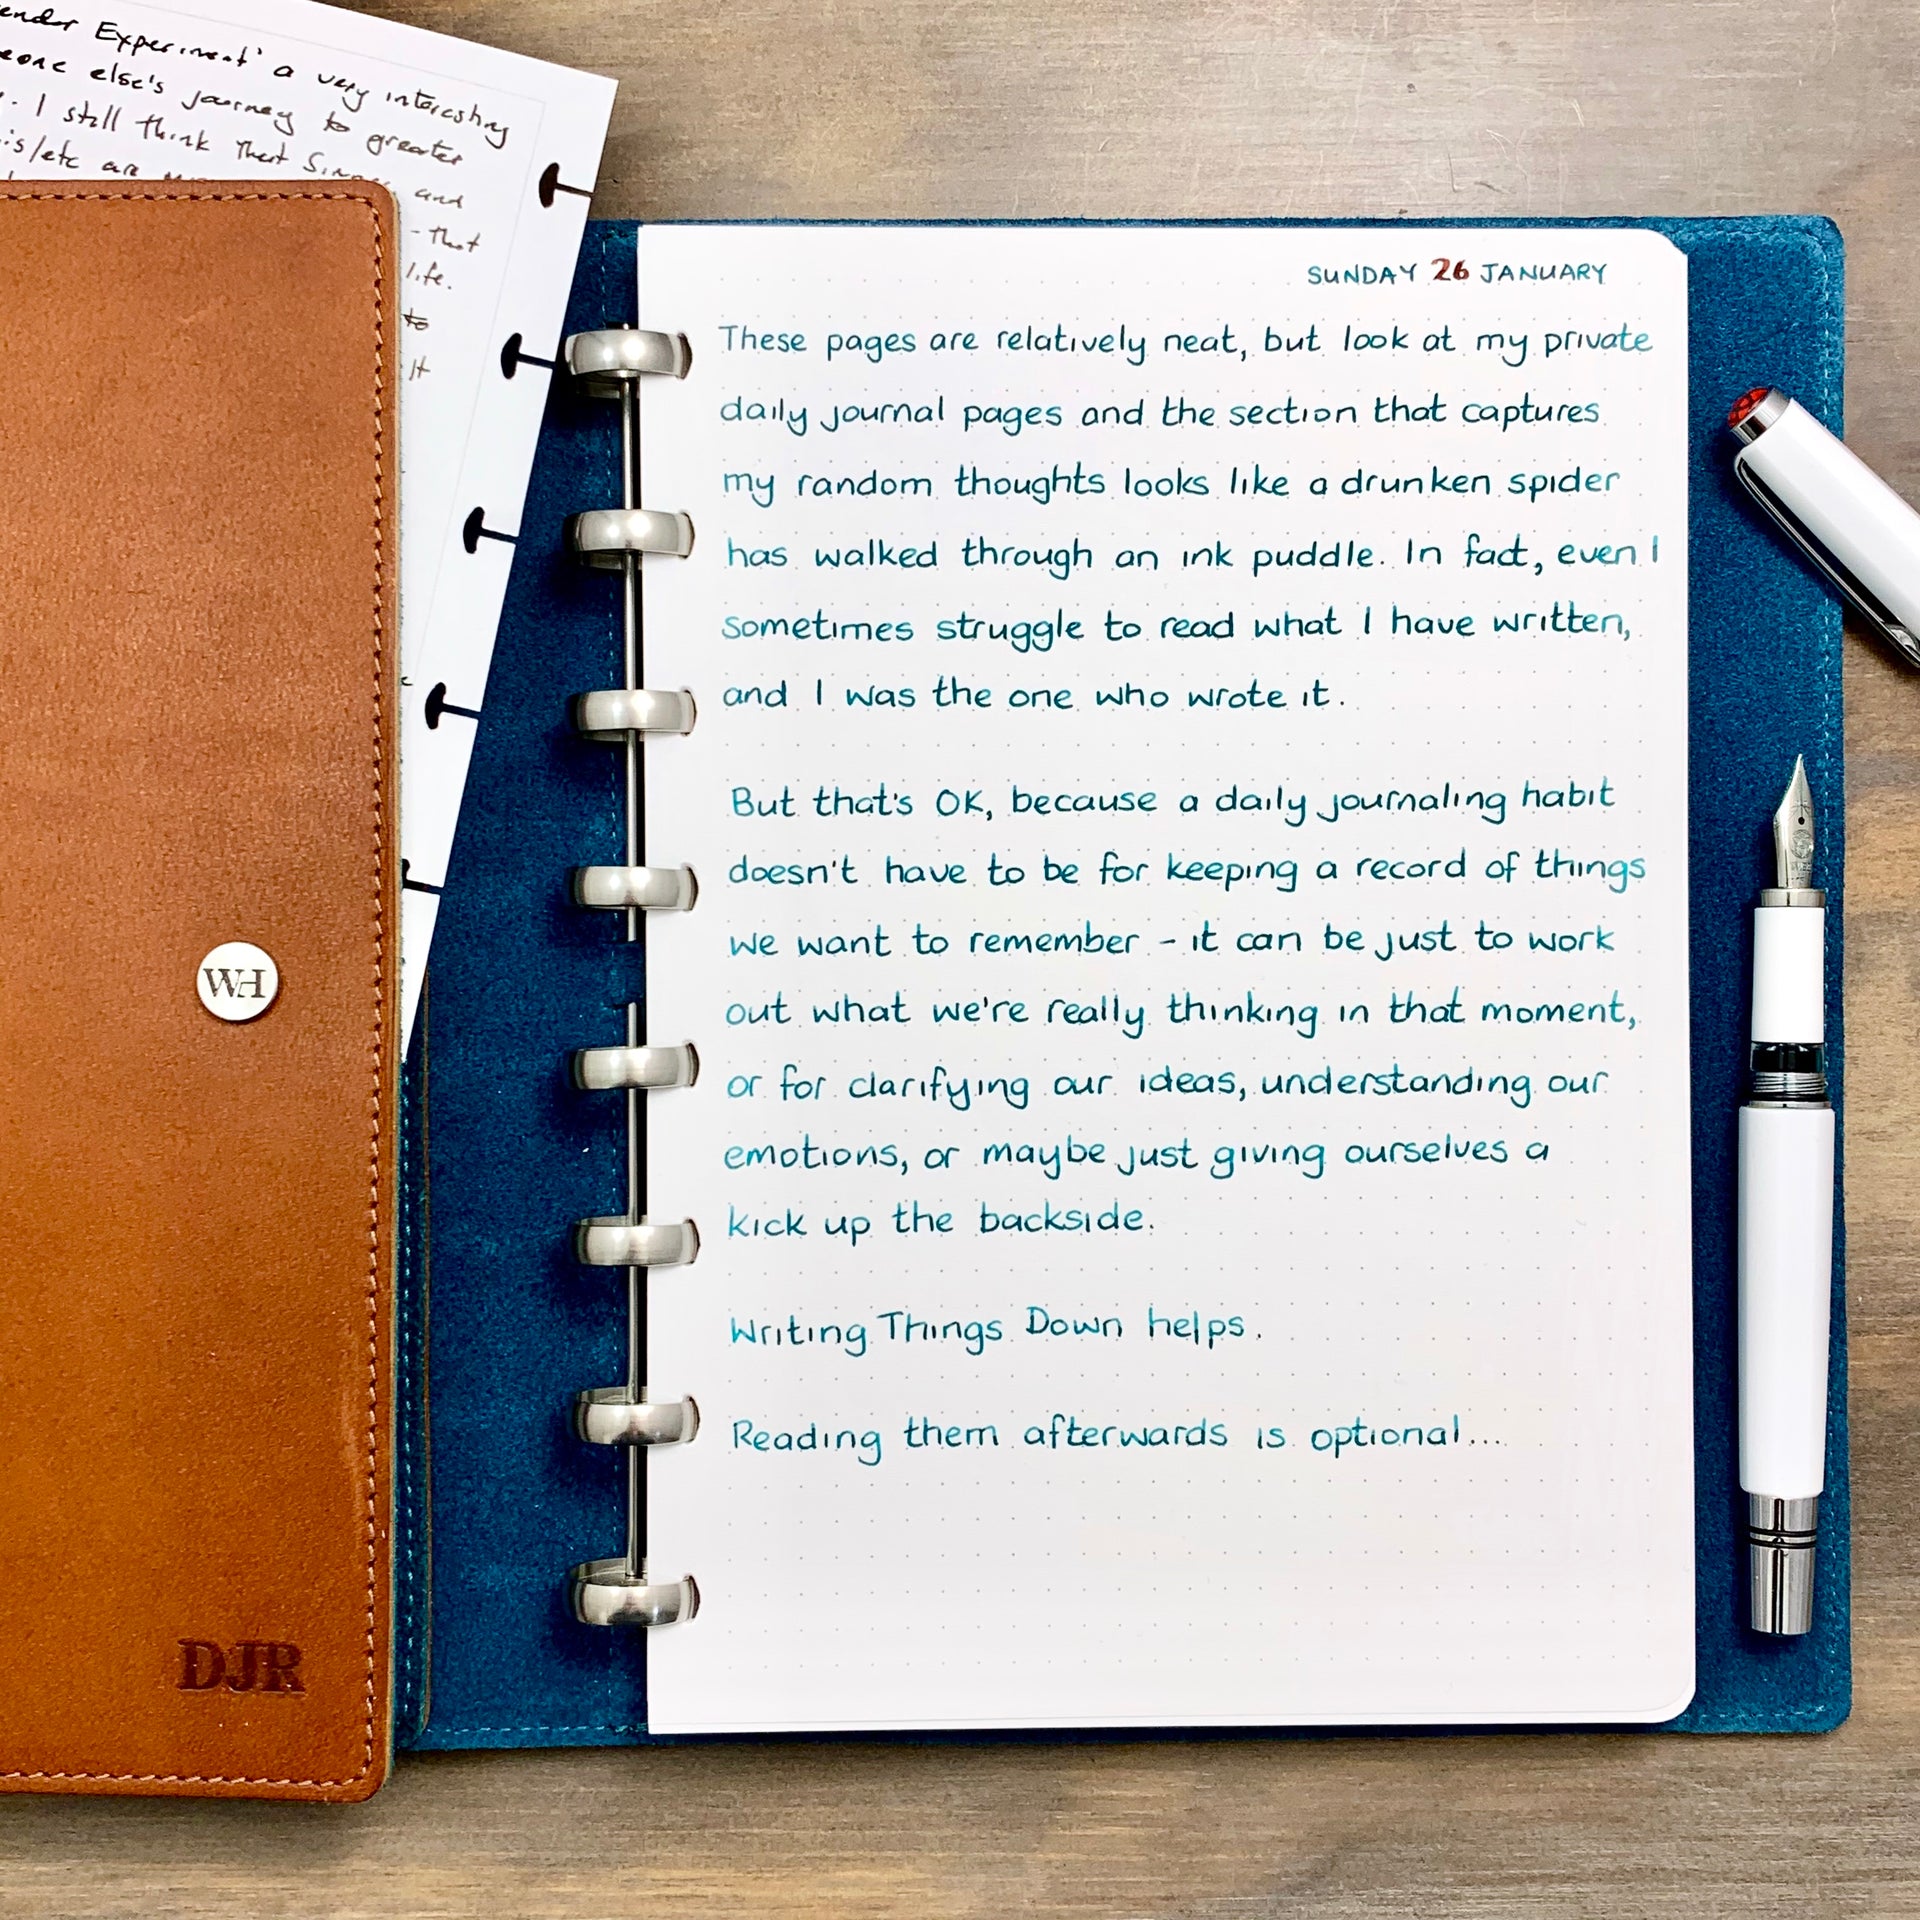 ender Experiment' a very interesting
eone else's journey to greater
. I still think that Singer and
is/etc are
- that
life.
to
it
WH
DJR
SUNDAY 26 JANUARY
These pages are relatively neat, but look at my private
daily journal pages and the section that captures
my random thoughts looks like a drunken spider
has walked through an ink puddle. In fact, even I
sometimes struggle to read what I have written,
and I was the one who wrote it.
But that's OK, because a daily journaling habit
doesn't have to be for keeping a record of things
we want to remember - it can be just to work
out what we're really thinking in that moment,
or for clarifying our ideas, understanding our
emotions, or maybe just giving ourselves a
kick up the backside.
Writing Things Down helps.
Reading them afterwards is optional...